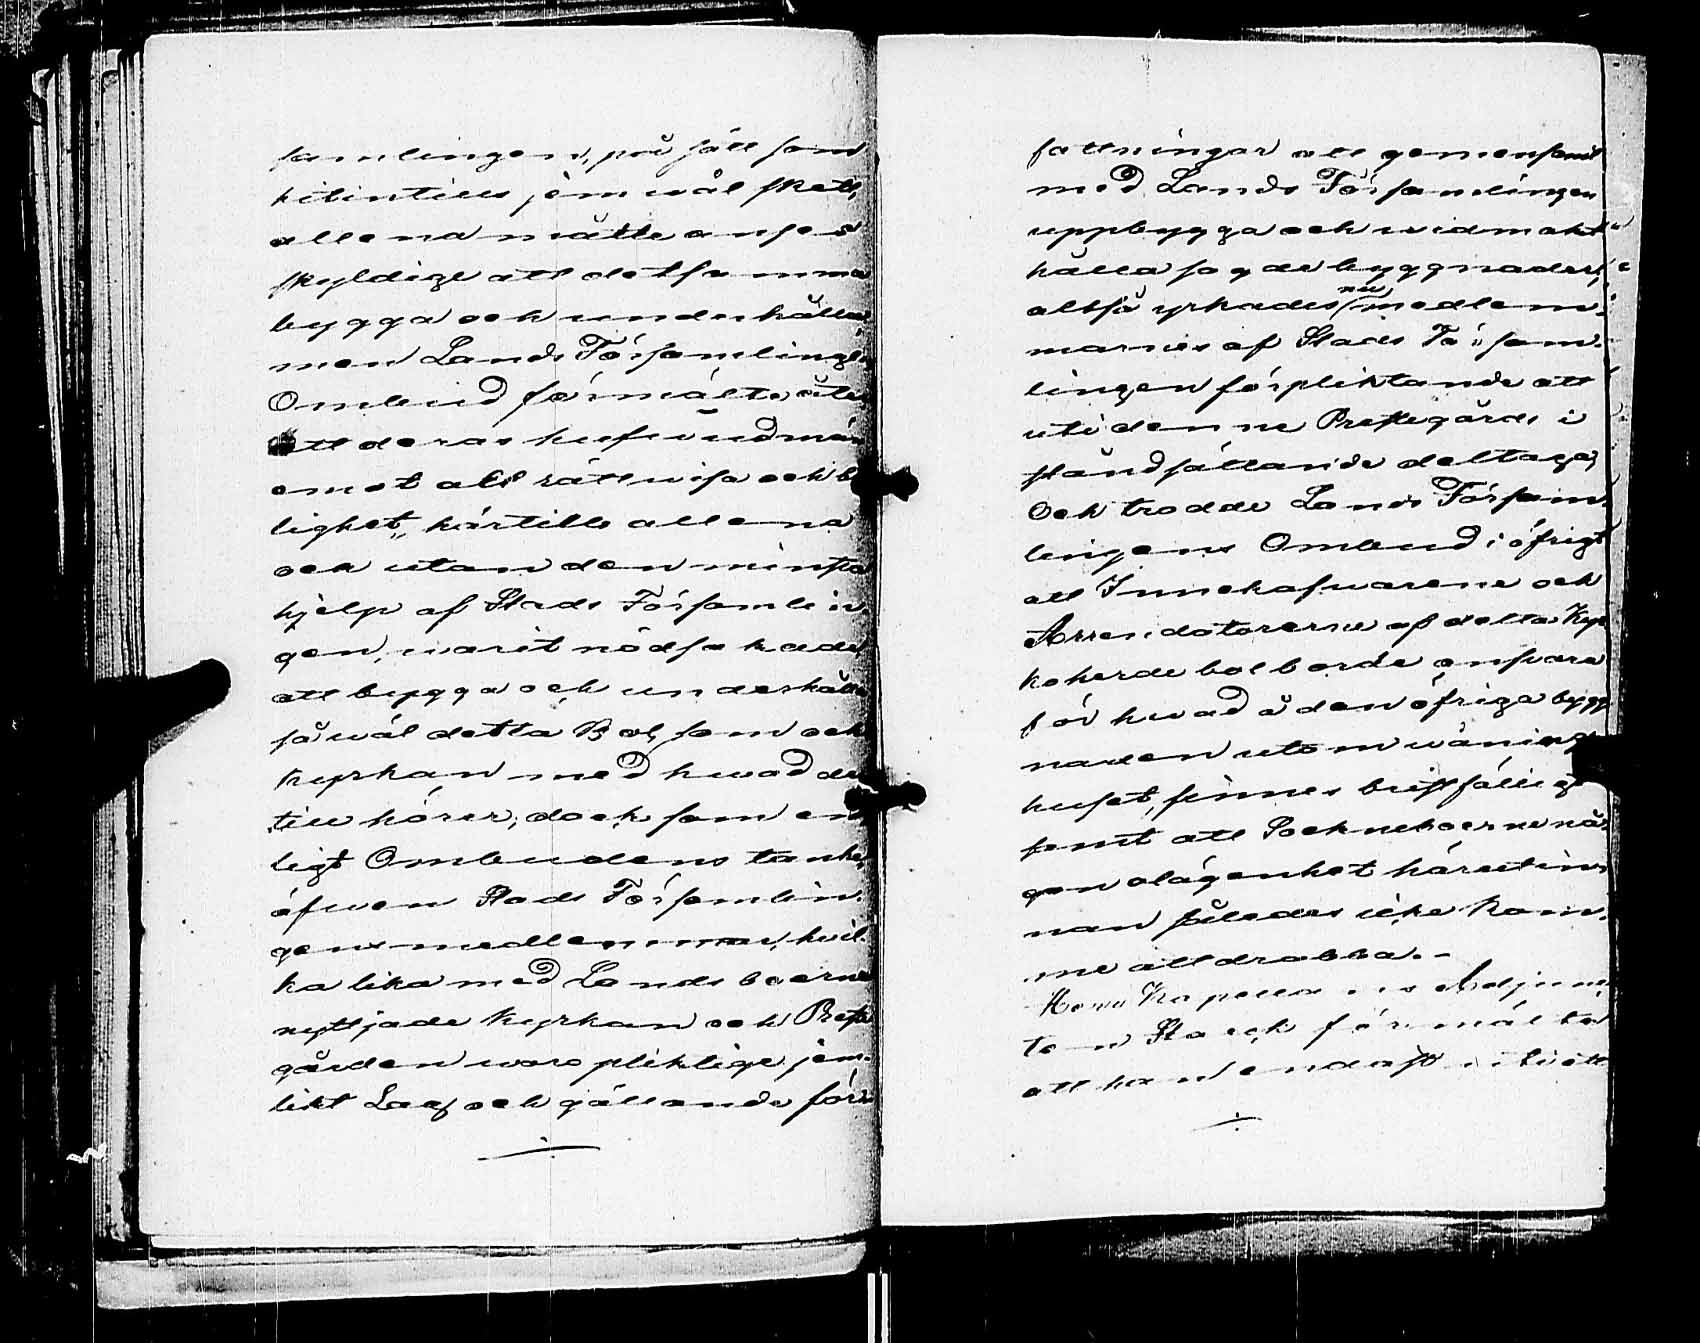 samlingen, på sätt som
hitintills jemwäl skett,
allena måtte anses
skyldige att detsamma
bygga och underhålla,
men Lands Församlingens
Ombud förmälte åter
att deras hufwudmän
emot all rättwisa och b
lighet, härtills allena
och utan den minsta
hjelp af Stads Försomlin-
gen, warit nödsakade
att bygga och underhålla
såwäl detta Bol, som och
kyrkan med hwad der
till hörer; dock som en
ligt Ombudens tanke,
äfwen Stads Församlin-
gens medlemmar, hwil-
ka lika med Landsboerne
nyttjade Kyrkan och Preste
gården woro pliktige jem-
likt Lag och gällande för-
fattningar att gemensamt
med Lands Församlingen
uppbygga och widmakt
hålla sagde byggnader,
altså yrkades nu medlem-
marnes af Stads Försam-
lingen förpliktande att
uti denne Prestegårds i
ståndsättande deltaga,
Och trodde Lands Församl-
lingens Ombud i öfrigt
att Innehafwarene och
Arrendatorerne af detta Kyr
koherdebol borde answara
för hwad å den öfriga bygg
naden utom wånings
huset, finnes bristfälligt
samt att Sockneboerne nå-
gon olägenhet härutin-
nan således icke kom-
me att drabba.-
Herr Kapellans Adjunc
ten Starck förmälte
att han endast